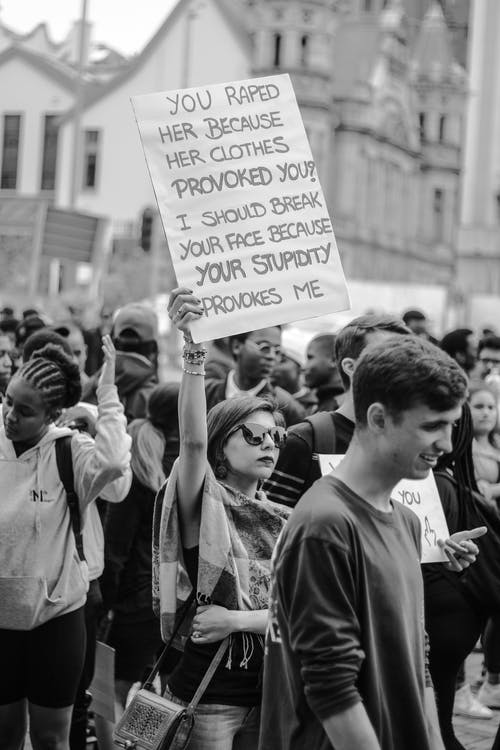 YOU RAPED
HER BECAUSE
HER CLOTHES
PROVOKED YOU?
I SHOULD BREAK
YOUR FACE BECAUSE
YOUR STUPIDITY
PROVOKES ME
YOU